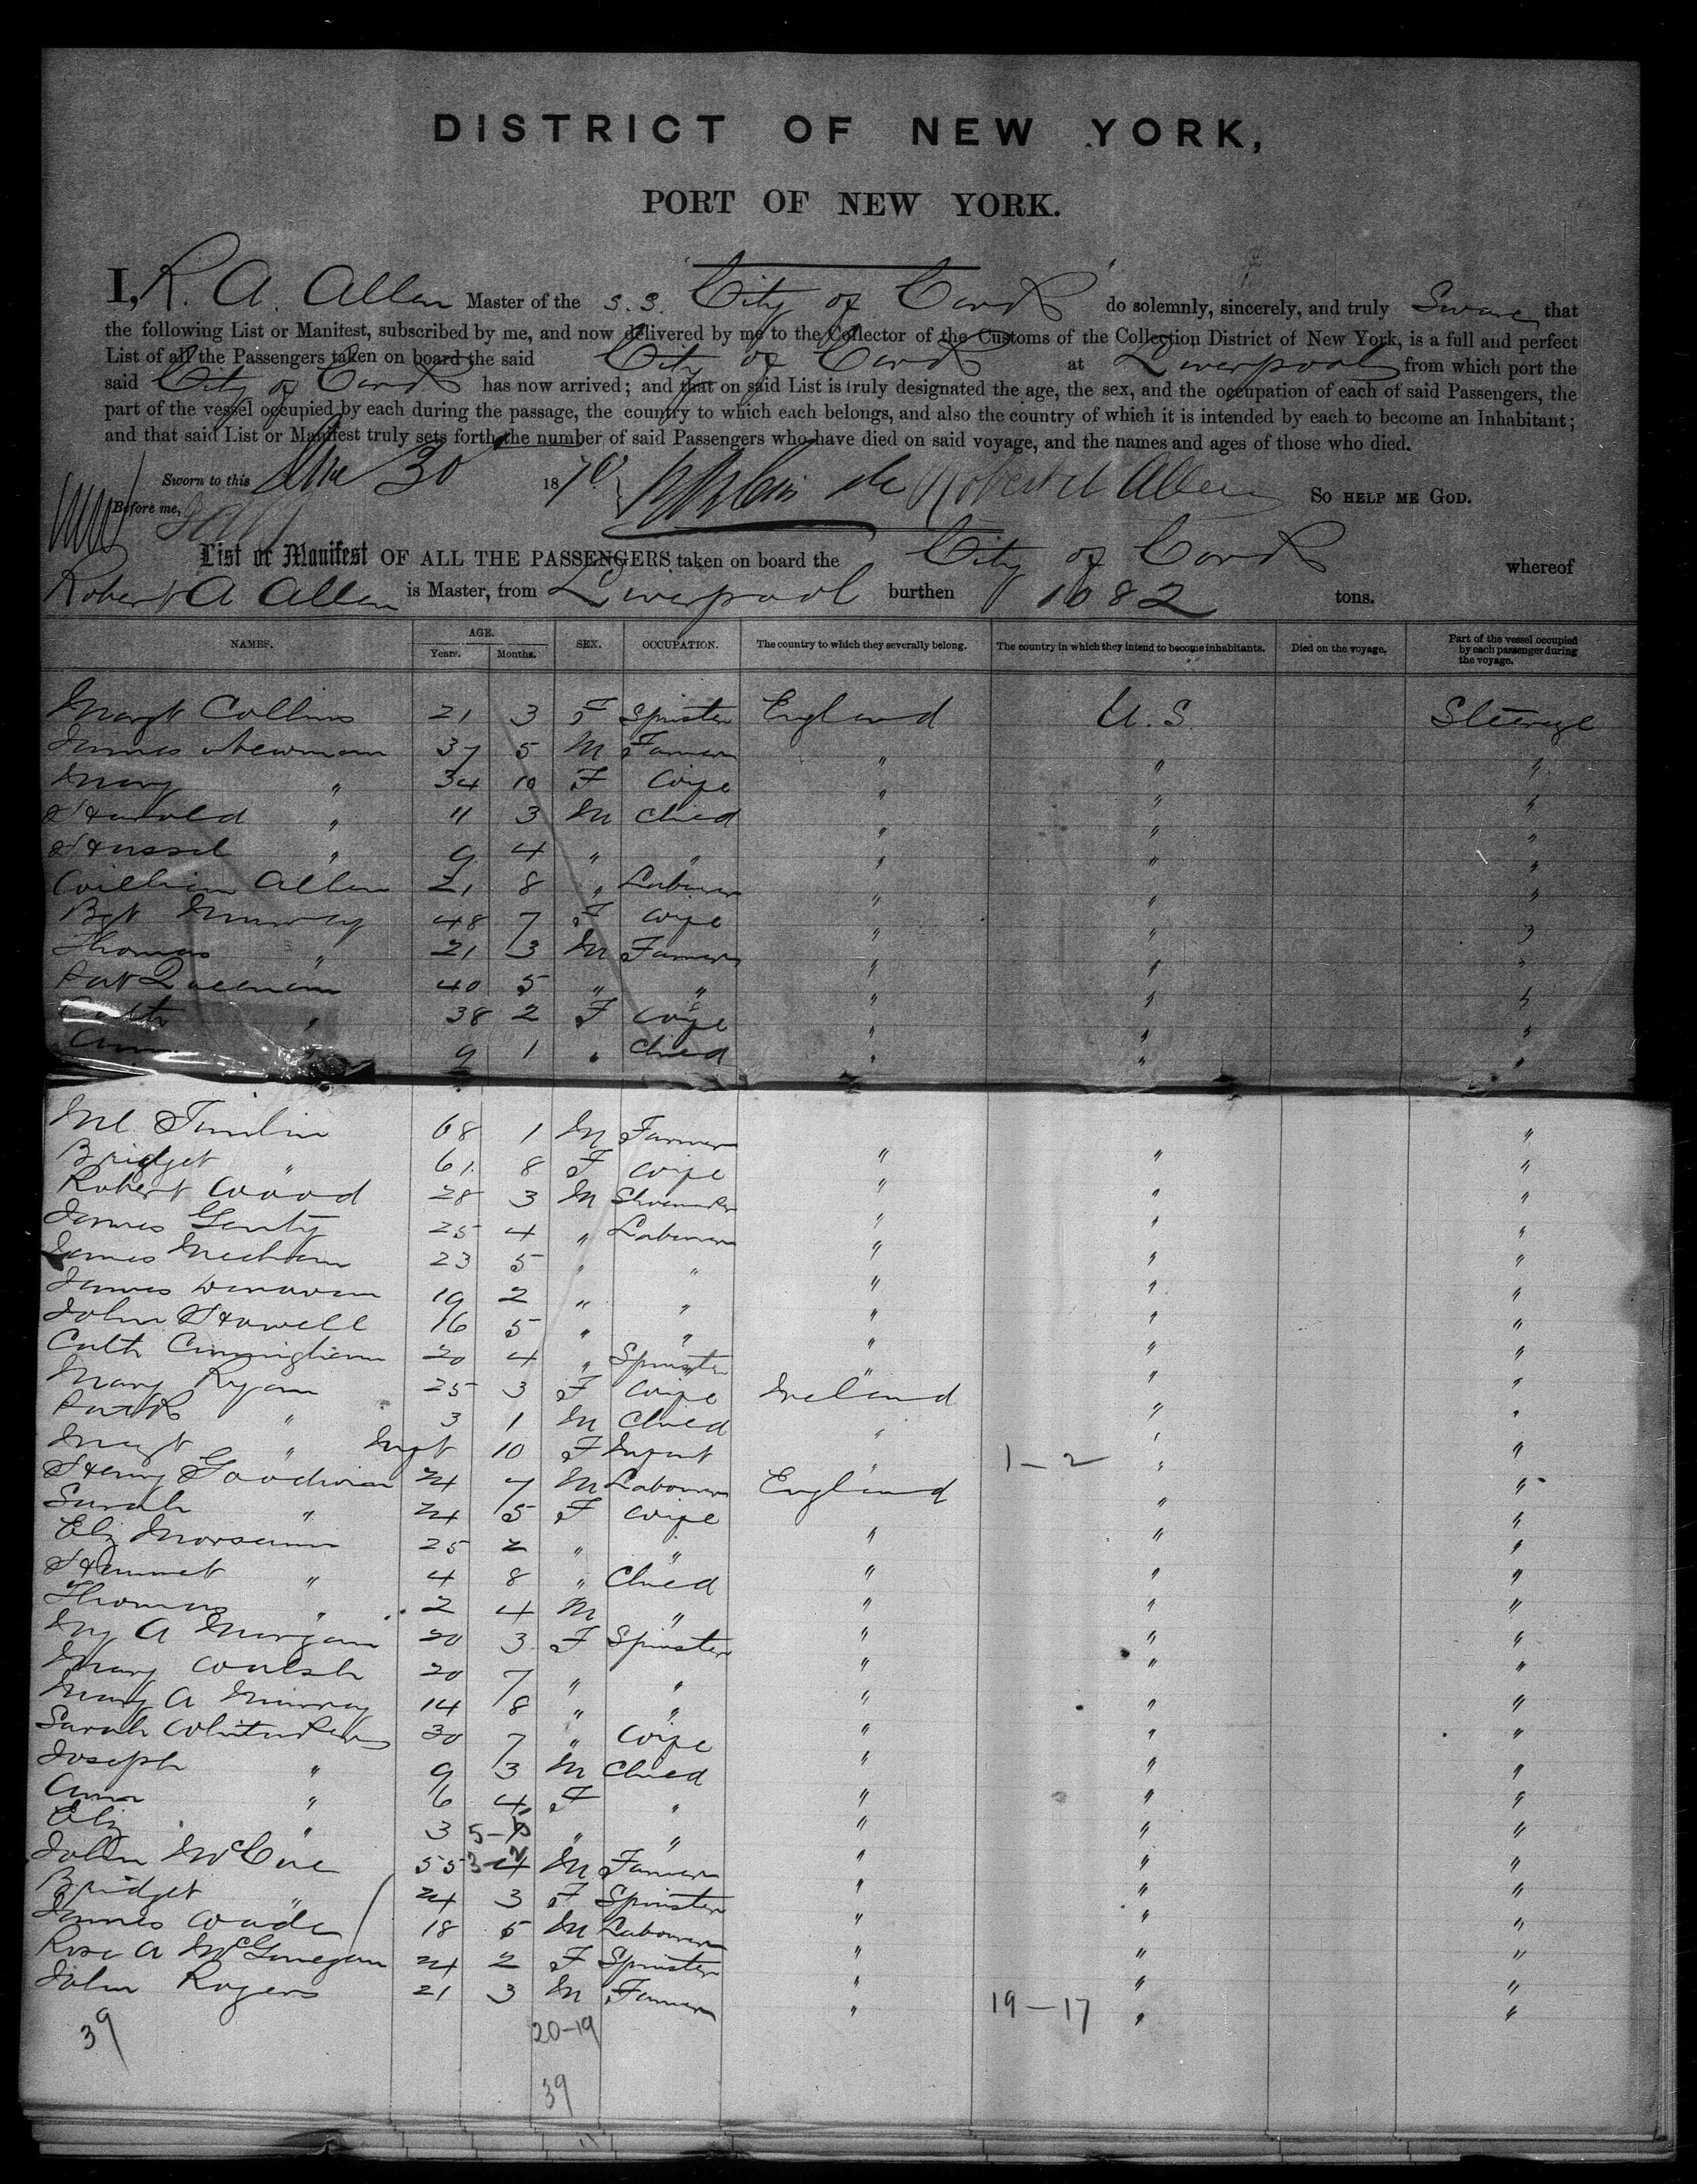 DISTRICT OF NEW YORK,
PORT OF NEW YORK.
I, R. A. Allen Master of the S.S. City of Cork do solemnly, sincerely, and truly Swear that
the following List or Manifest, subscribed by me, and now delivered by me to the Collector of the Customs of the Collection District of New York, is a full and perfect
List of all the Passengers taken on board the said City of Cork at Liverpool from which port the
said City of Cork has now arrived; and that on said List is truly designated the age, the sex, and the occupation of each of said Passengers, the
part of the vessel occupied by each during the passage, the country to which each belongs, and also the country of which it is intended by each to become an Inhabitant;
and that said List or Manifest truly sets forth the number of said Passengers who have died on said voyage, and the names and ages of those who died.
Sworn to this 30 1870 Robert A Allen SO HELP ME GOD.
Before me,
List or Manifest OF ALL THE PASSENGERS taken on board the City of Cork whereof
Robert A Allen is Master, from Liverpool burthen 1082 tons.
NAMES. AGE. Years. Months. SEX. OCCUPATION. The country to which they severally belong. The country in which they intend to become inhabitants. Died on the voyage. Part of the vessel occupied by each passenger during the voyage.
Margt Collins 21 3 F Spinster England U.S. Steerage
James Newman 37 5 M Farmer " " "
Mary " 34 10 F Wife " " "
Harold " 11 3 M Child " " "
" 9 4 " " " " "
William Allen 21 8 " Laborer " " "
Bgt Murray 48 7 F Wife " " "
Thomas " 21 3 M Farmer " " "
Pat 40 5 " " " " "
Cath " 38 2 F Wife " " "
Ann " 9 1 " Child " " "
Ml Timlin 68 1 M Farmer " " "
Bridget " 61 8 F Wife " " "
Robert Wood 28 3 M Shoemaker " " "
James Genty 25 4 " Laborer " " "
James Mechan 23 5 " " " " "
James Donovan 19 2 " " " " "
John Howell 16 5 " " " " "
Cath Cunningham 20 4 " Spinster " " "
Mary Ryan 25 3 F Wife Ireland " "
Patk " 3 1 M Child " " "
Margt " Inft 10 F Infant " 1-2 " "
Henry Goodwin 24 7 M Laborer England " "
Sarah " 24 5 F Wife " " "
Eliz 25 2 " " " " "
" 4 8 " Child " " "
Thomas " 2 4 M " " " "
My A Morgan 20 3 F Spinster " " "
Mary Walsh 20 7 " " " " "
Mary A Murray 14 8 " " " " "
Sarah Whitaker 30 7 " Wife " " "
Joseph " 9 3 M Child " " "
Anna " 6 4 F " " " "
Eliz " 3 5 " " " " "
John McCue 55 M Farmer " " "
Bridget " 24 3 F Spinster " " "
James Wade 18 5 M Laborer " " "
Rose A McGonegan 24 2 F Spinster " " "
John Rogers 21 3 M Farmer " 19-17 " "
39 20-19
39